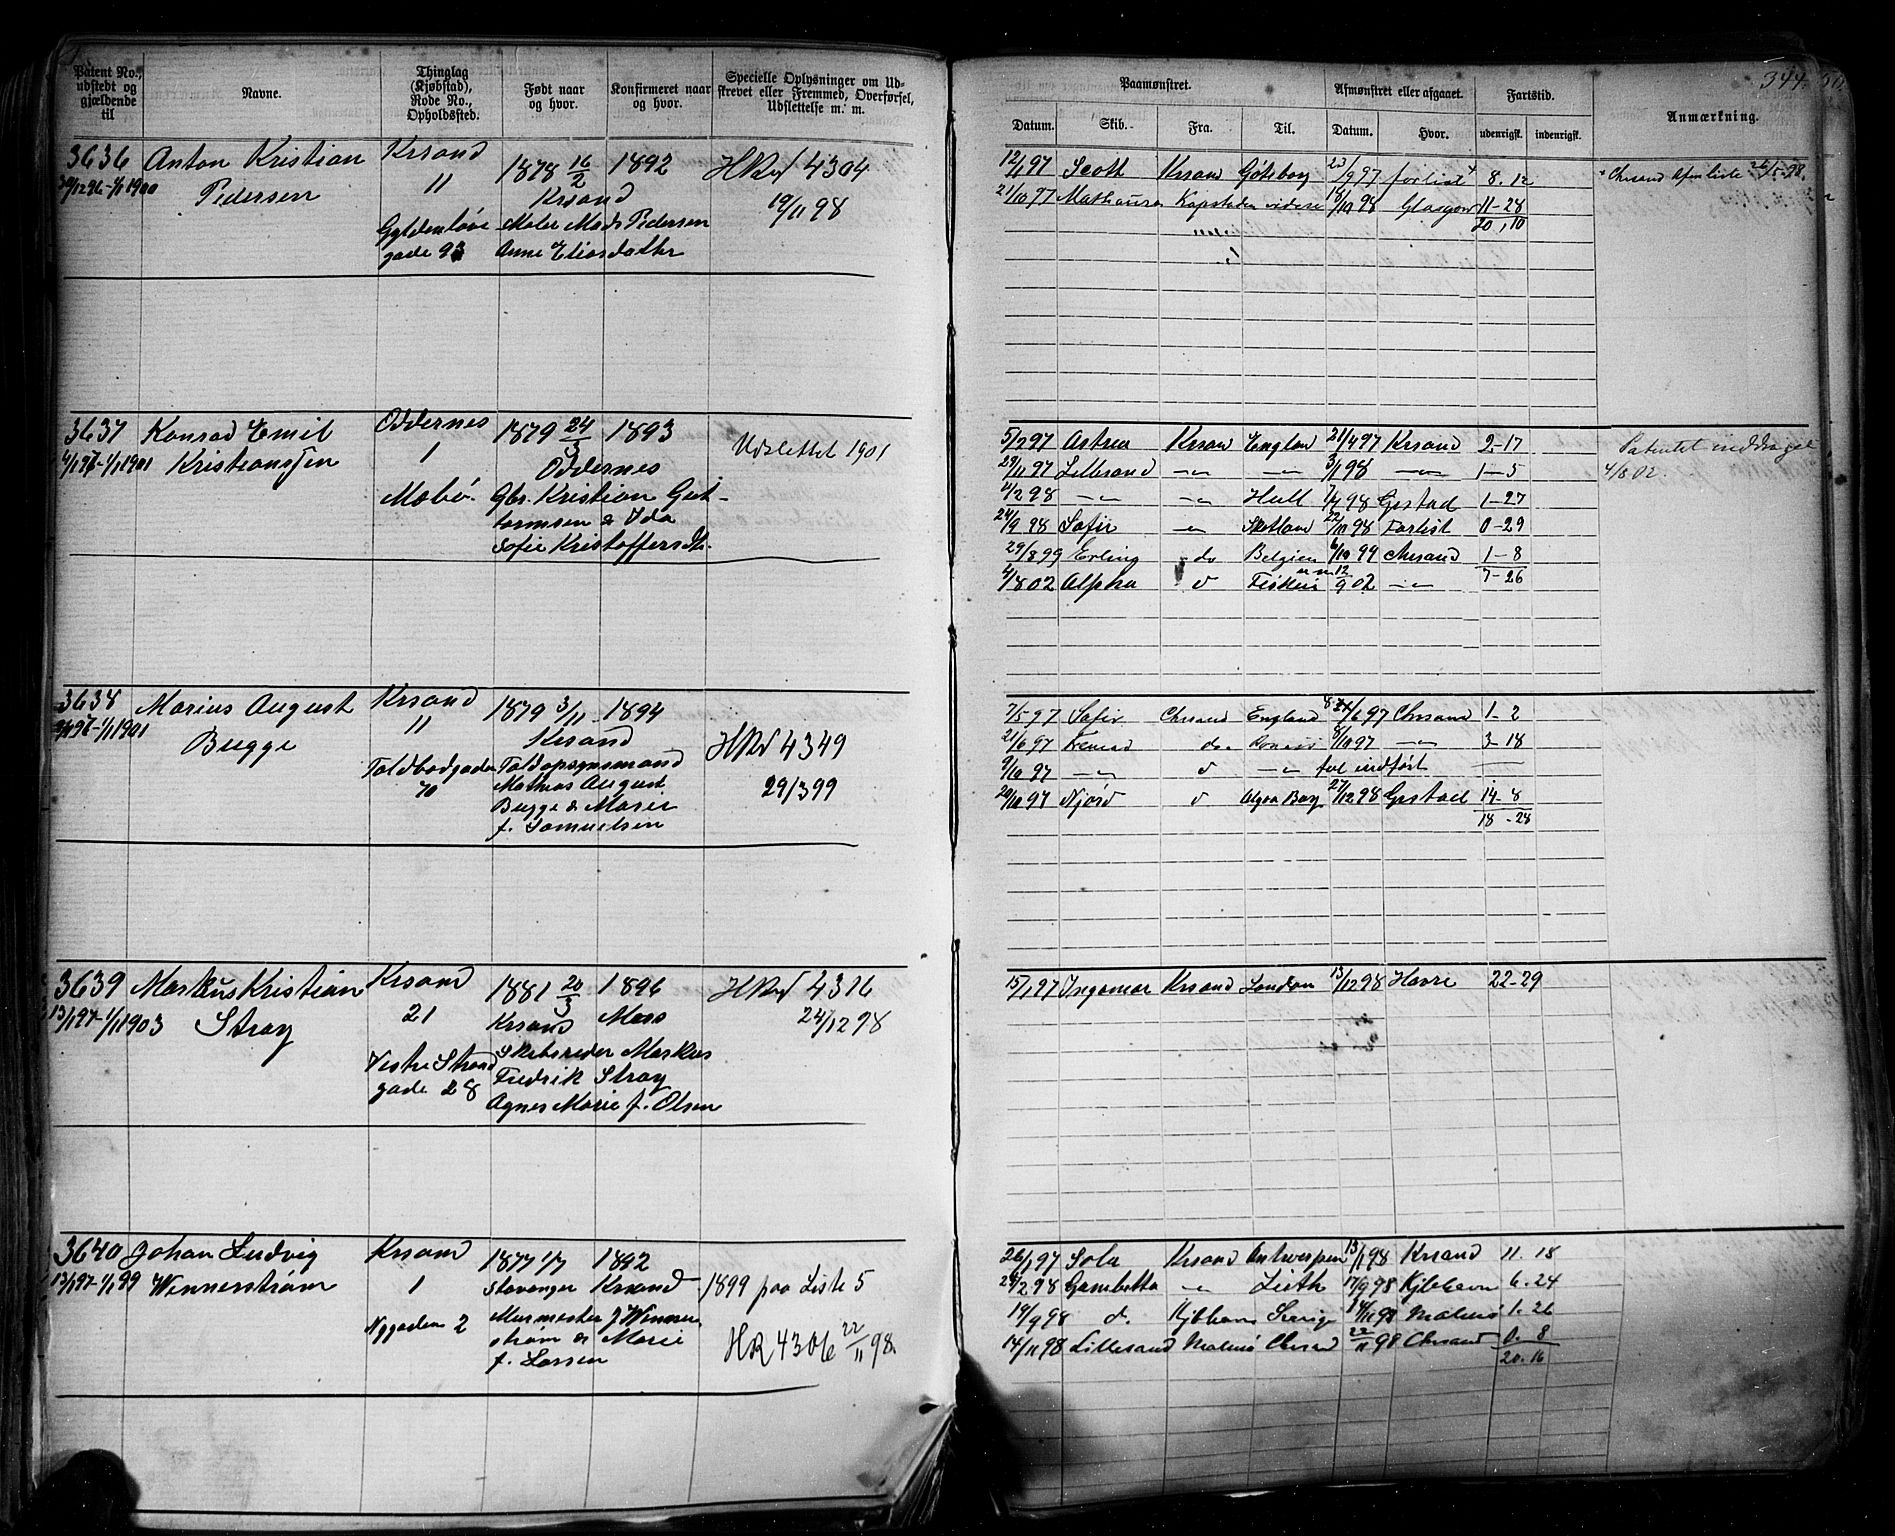 344.
Patent No., udstedt og gjældende til
Navne.
Thinglag (Kjøbstad), Rode No., Opholdssted.
Født naar og hvor.
Konfirmeret naar og hvor.
Specielle Oplysninger om Udskrevet eller Fremmed, Overførsel, Udslettelse m. m.
Paamønstret.
Afmønstret eller afgaaet.
Fartstid.
Anmærkning.
Datum. Skib. Fra. Til. Datum. Hvor. udenrigsk. indenrigsk.
3636 Anton Kristian Krsand 1878 16/2 1892 HRvf 4304
Pedersen 11 Krsand 19/11 98
Gyldenløve Maler Mads Pedersen
gade 93 Anne Eliasdatter
12/1 97 Scott Krsand Göteborg 23/9 97 forlist 8. 12
21/10 97 Kapstaden videre 18/10 98 Glasgow 11-28
20, 10
3637 Konrad Emil Oddernes 1879 24/3 1893 Udslettet 1901
4/1 97-1/1 1901 Kristianssen 1 Oddernes
Mæbø. Gbr. Kristian Gut-
tormsen & Ida
Sofie Kristoffersdt.
5/2 97 Astrea Krsan Englan 21/4 97 Krsand 2-17 Patentet inddraget
29/11 97 Lillesand -"- -"- 3/1 98 -"- 1-5 4/8 02.
4/2 98 -"- -"- Hull 7/4 98 Grstad 1-27
24/9 98 Sofie -"- Skotland 22/10 98 Forlist 0-29
29/8 99 Erling do Belgien 6/10 99 Chrsand 1-8
7-26
4/8 02 Alpha d 12/9 02 -"-
3638 Marius August Krsand 1879 3/11 1894
Bugge 11 Krsand HRvf 4349
Toldbodgaden Toldopsynsmand
70 Mathias August 29/3 99
Bugge & Maren
f. Samuelsen
7/5 97 Sofie Chrsand England /6 97 Chrsand 1-2
21/6 97 8/10 97 -"- 3-18
9/10 97 -"- d -"- feil indført
20/10 97 Njord d Algoa Bay 27/12 98 Grstad 14-8
18-28
3639 Markus Kristian Krsand 1881 20/3 1896 HRvf 4316
13/1 97-1/1 1903 Stray 21 Krsand Moss 24/12 98
Vestre Strand Skibsreder Markus
gade 28 Fredrik Stray
Agnes Marie f. Olsen
15/1 97 Ingomar Krsand London 13/12 98 Havre 22-29
3640 Johan Ludvig Krsand 1877 1/7 1892
13/1 97-1/1 99 Wennerstrøm 1 Stavanger Krsand 1899 paa Liste 5
Nygaden 2 Murmester J Wenner
strøm & Marie HR 4306 22/11 98.
f. Larsen
26/1 97 Sola Krsand Antwerpen 13/1 98 Krsand 11. 18
24/2 98 Gambetta -"- Leith 17/9 98 Kjbhavn 6. 24
19/9 98 d. Kjbhavn Sverige 14/11 98 Malmø 1. 26
14/11 98 Lillesand Malmø Chrsand 22/11 98 Chrsand 0. 8
20. 16